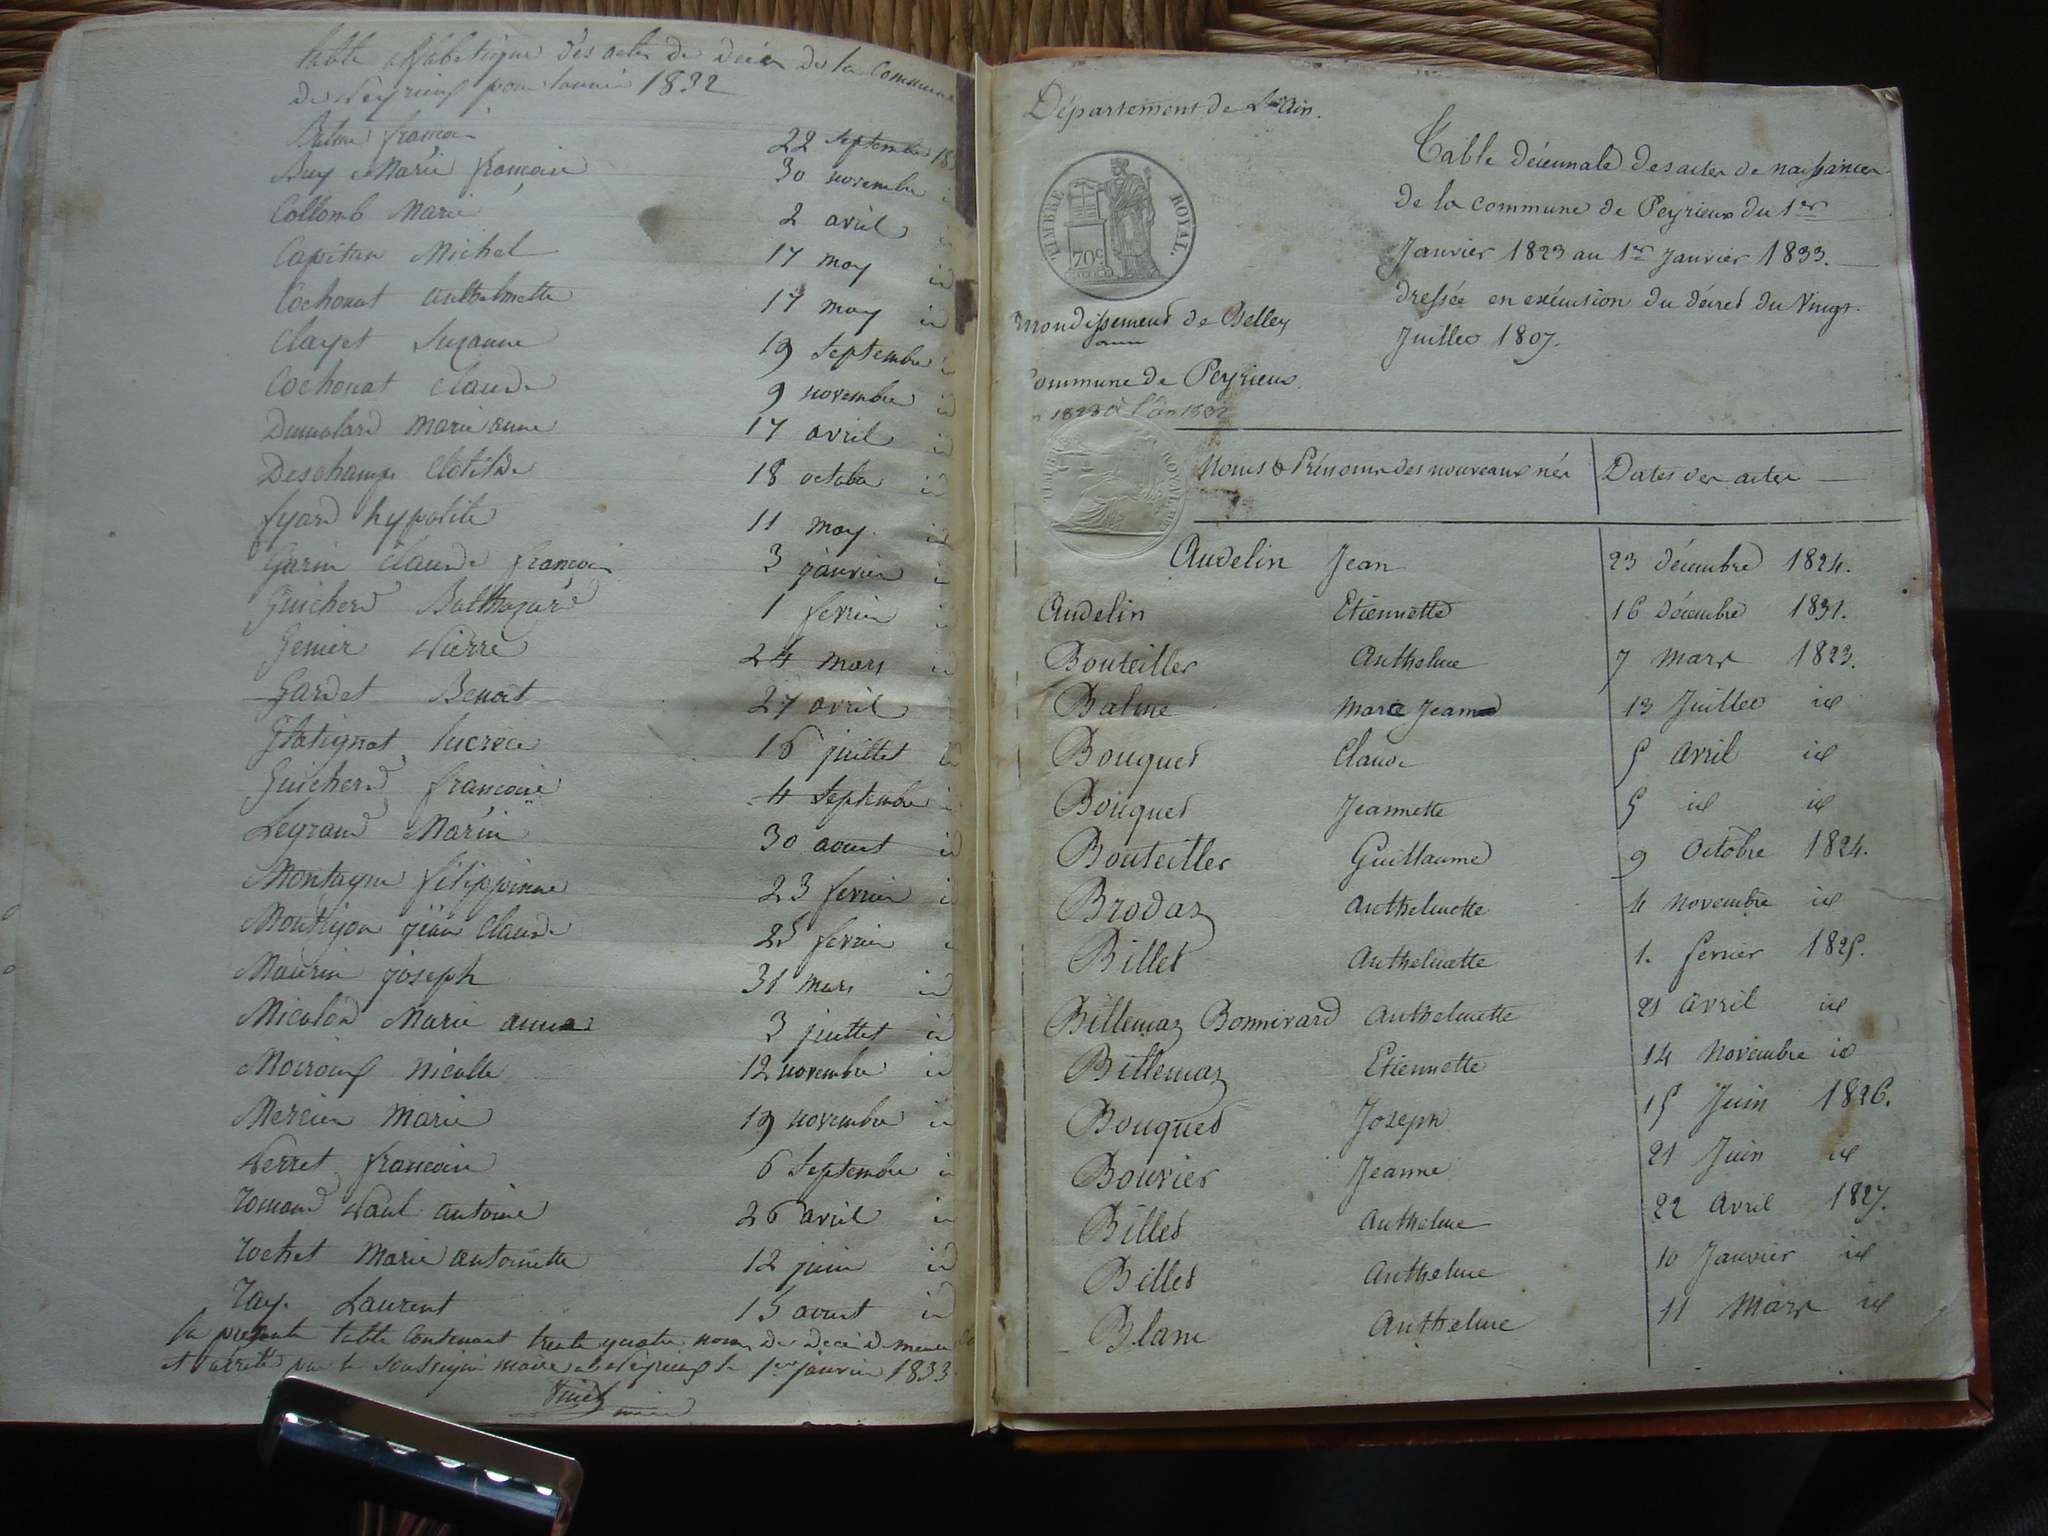 table alfabetique des actes de décès de la Commune
de Peyrieux pour lannée 1832
Balme francois 22 septembre 18
Buy Marie francoise 30 novembre id
Collomb Marie 2 avril id
Capitan Michel 17 may id
Cochonat anthelmette 17 may id
Clayet Suzanne 19 septembre id
Cochonat Claude 9 novembre id
Dumolard marie anne 17 avril id
Deschamps Clotilde 18 octobre id
fyard hypolite 11 may id
Garin Claude francois 3 janvier id
Guicherd Balthazard 1 fevrier id
Genier Pierre 24 mars id
Gardet Benoit 27 avril
Glatignat lucrece 16 juillet id
Guicherd francoise 4 septembre id
Legrand Marie 30 aoust id
Montagne filippinne 23 fevrier id
jean Claude 25 fevrier
Maurin joseph 31 mars id
Micalod Marie anne 3 juillet id
nicolle 12 novembre id
Mercier marie 19 novembre id
Perret francoise 6 Septembre id
romand Paul antoine 26 avril id
rochet Marie antoinette 12 juin id
ray Laurent 15 aoust id
la présente table Contenant trente quatre noms de
et arretté par le Soussigné maire de Peyrieux le 1er janvier 1833
maire
Département de L'ain.
TIMBRE ROYAL.
70c
Table décennale des actes de naissances
de la commune de Peyrieux du 1er
Janvier 1823 au 1er Janvier 1833.
dressée en exécution du décret du Vingt
Juillet 1807.
arrondissement de Belley
Commune de Peyrieux
1823 à l'an 1832
Noms & Prénoms des nouveaux nés Dates des actes
Audelin Jean 23 décembre 1824.
Audelin Etiennette 16 Décembre 1831.
Bouteiller Anthelme 7 Mars 1823.
Balme Marie Jeanne 13 Juillet id
Bouquet Claude 5 avril id
Bouquet Jeannette 5 id id
Bouteiller Guillaume 9 Octobre 1824.
Brodaz Anthelmette 4 Novembre id
Billet Anthelmette 1. fevrier 1825.
Billemaz Bonnivard Anthelmette 21 avril id
Billemaz Etiennette 14 Novembre id
Bouquet Joseph 15 Juin 1826.
Bouvier Jeanne 21 Juin id
Billet Anthelme 22 Avril 1827.
Billet Anthelme 10 Janvier id
Blanc Anthelme 11 Mars id